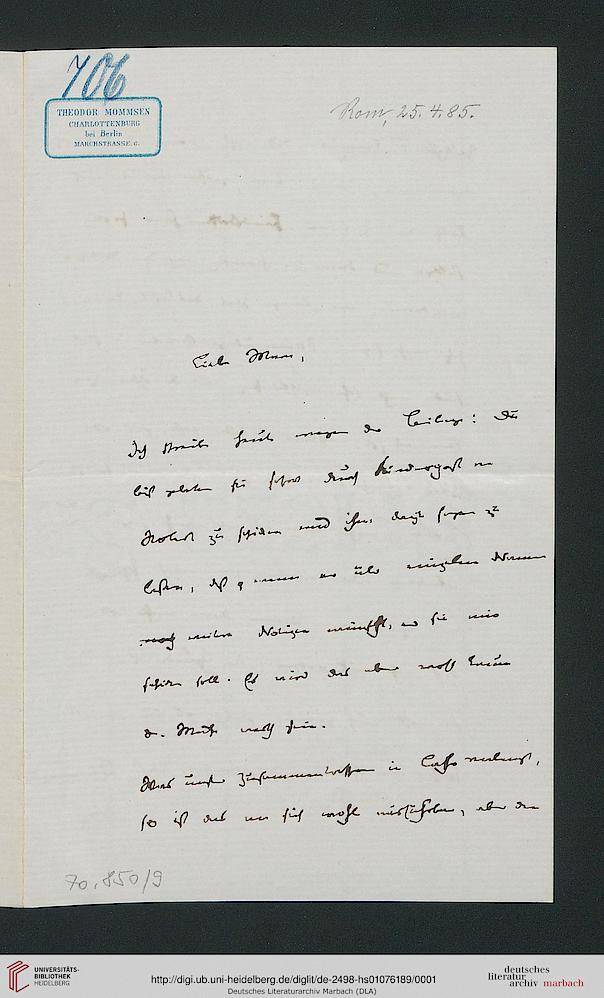 706
THEODOR MOMMSEN
CHARLOTTENBURG
bei Berlin
MARCHSTRASSE 6.
Rom, 25.4.85.
Liebe Marie,
Ich schreibe heute wegen der Beilage: Du
bist gebeten sie sofort durch
zu schicken und ihm dazu sagen zu
lassen, daß er wenn er über einzelne
noch weitere Notizen wünscht, er sie mir
schicken soll. Es wird das aber wohl kaum
der Mühe werth sein.
Was unser Zusammentreffen in
so ist das an sich wohl ausführbar, aber
70.850/9
UNIVERSITÄTS-
BIBLIOTHEK
HEIDELBERG
http://digi.ub.uni-heidelberg.de/diglit/de-2498-hs01076189/0001
Deutsches Literaturarchiv Marbach (DLA)
deutsches
literatur
archiv marbach